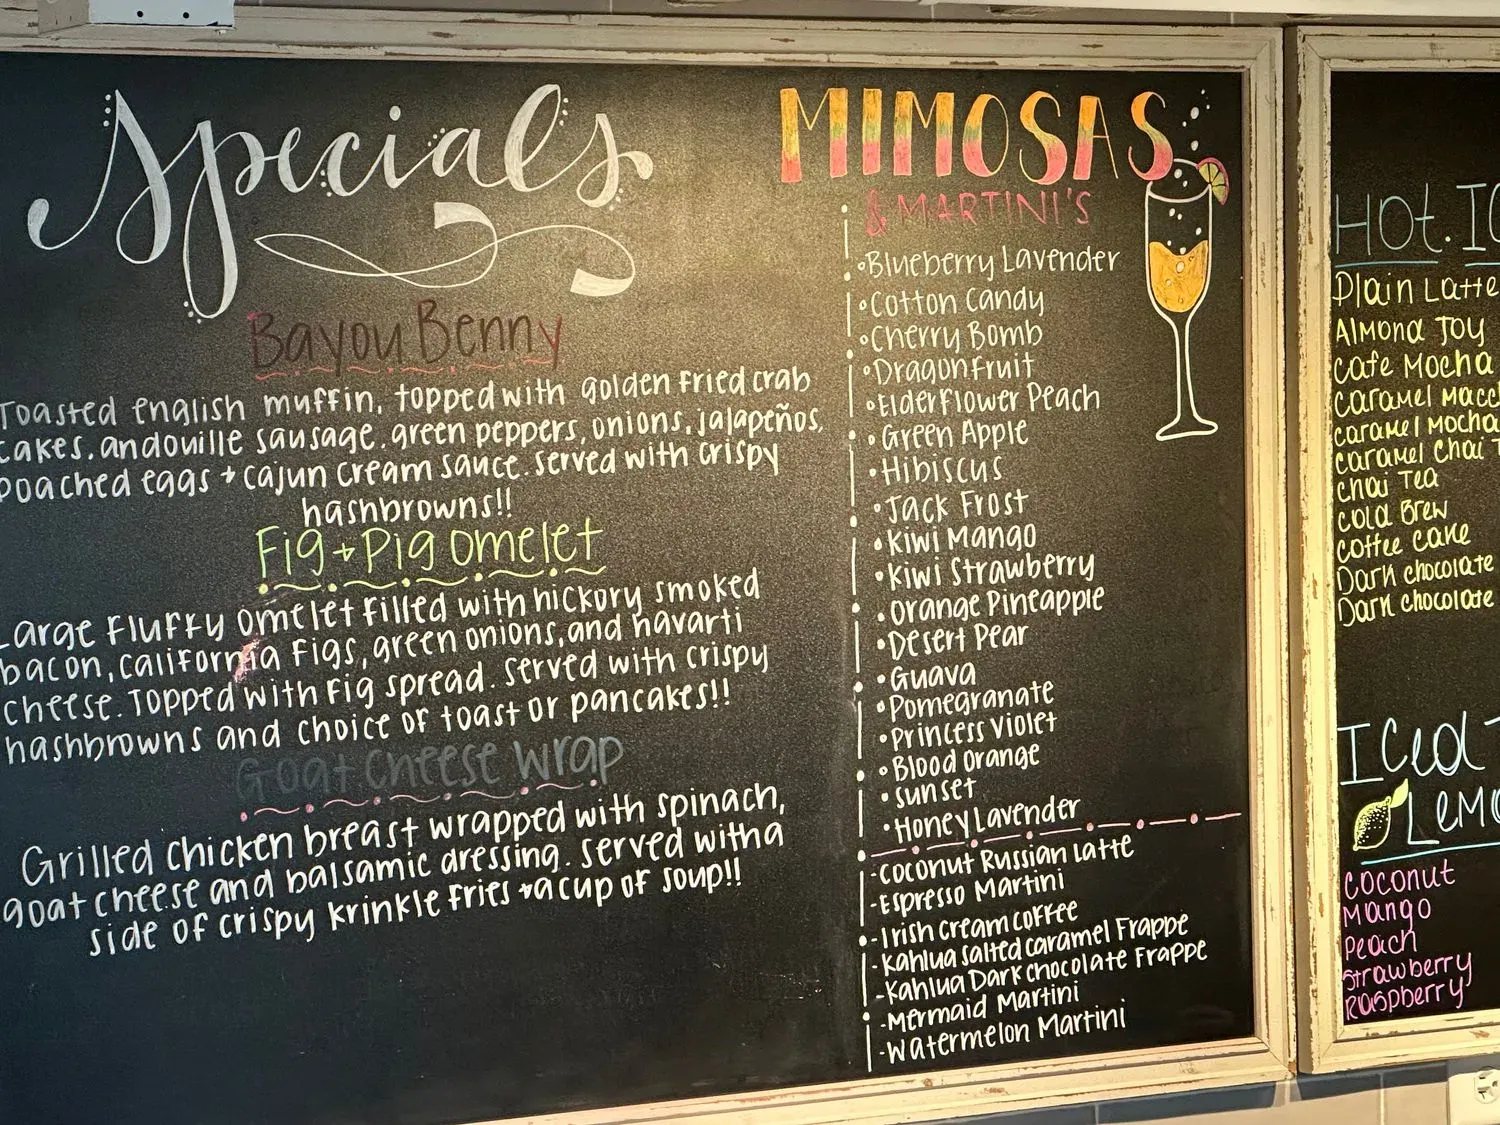 Specials
Bayou Benny
Toasted english muffin, topped with golden fried crab
cakes, andouille sausage, green peppers, onions, jalapeños,
poached eggs + cajun cream sauce. served with crispy
hashbrowns!!
Fig + Pig omelet
Large fluffy omelet filled with hickory smoked
bacon, california figs, green onions, and havarti
cheese. Topped with fig spread. served with crispy
hashbrowns and choice of toast or pancakes!!
Goat cheese wrap
Grilled chicken breast wrapped with spinach,
goat cheese and balsamic dressing. served with a
side of crispy krinkle fries + a cup of soup!!
MIMOSAS
& MARTINI'S
•Blueberry Lavender
•Cotton Candy
•Cherry Bomb
•Dragonfruit
•Elderflower Peach
•Green Apple
•Hibiscus
•Jack Frost
•Kiwi Mango
•Kiwi Strawberry
•Orange Pineapple
•Desert Pear
•Guava
•Pomegranate
•Princess Violet
•Blood Orange
•Sunset
•Honey Lavender
-Coconut Russian Latte
-Espresso Martini
-Irish cream coffee
-Kahlua salted caramel Frappe
-Kahlua Dark chocolate Frappe
-Mermaid Martini
-Watermelon Martini
Hot. IC
Plain Latte
Almond Joy
Cafe Mocha
Caramel Macc
Caramel Mocha
Caramel Chai T
Chai Tea
Cold Brew
Coffee Cake
Dark chocolate
Dark chocolate
Iced
Lemo
Coconut
Mango
Peach
Strawberry
Raspberry